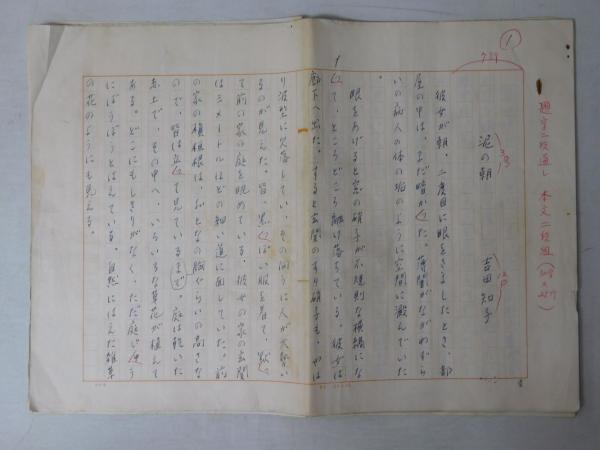 1
通字二段通し 本文二段組
泥の朝
吉田 知子
彼女が朝、二度目に眼をさましたとき、部
屋の中は、まだ暗かった。薄闇がながわずら
いの病人の体の垢のように空間に澱んでいた
。
眼をあげると窓の硝子が不規則な横縞にな
って、ところどころ融け落ちている。彼女は
廊下へ出た。すると玄関のすり硝子も、かな
り波型に欠落してい、その向うに人が大勢い
るのが見えた。皆、黒っぽい服を着て、黙っ
て前の家の庭を眺めている。彼女の家の玄関
は三メートルほどの細い道に面していた。前
の家の槙垣根は、おとなの胸ぐらいの高さな
ので、皆は立って見ているまで。庭は乾いた
赤土で、その中へ、いろいろな草花が植えて
ある。どこにもしきりがなく、ただ庭じゅう
にぼうぼうとはえている。自然にはえた雑草
の花のようにも見える。